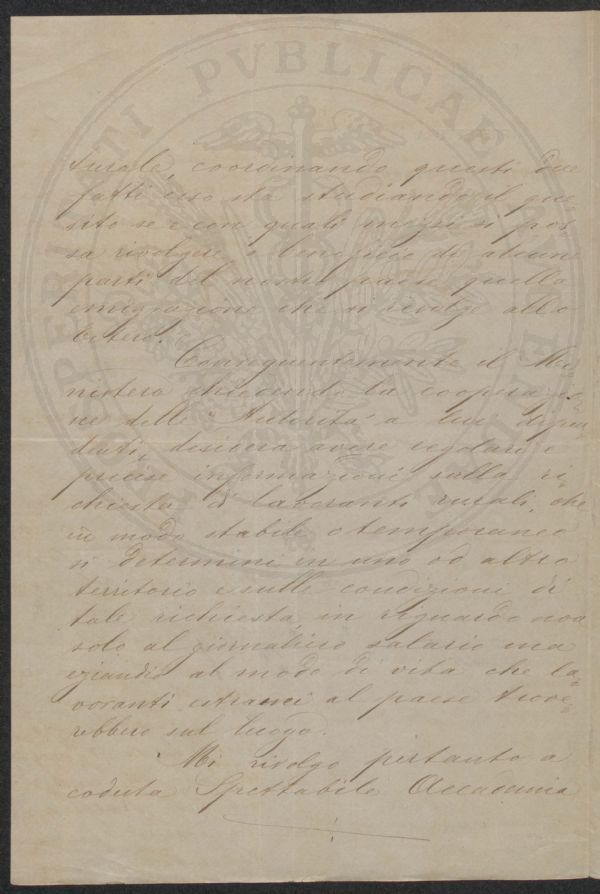 PROSPERITATI PVBLICAE AVGENDAE
turale, coordinando questi due
fatti esso sta studiando il que-
sito se e con quali mezzi si pos-
sa rivolgere a beneficio di alcune
parti del nostro paese quella
emigrazione che si rivolge allo
estero.
Conseguentemente il Mi-
nistero chiedendo la cooperazio-
ne delle Autorità a lui dipen-
denti, desidera avere regolari e
precise informazioni sulla ri-
chiesta di lavoranti rurali, che
in modo stabile o temporaneo
si determini in uno od altro
territorio e sulle condizioni di
tale richiesta, in riguardo non
solo al giornaliero salario ma
eziandio al modo di vita che la-
voranti estranei al paese trove-
rebbero sul luogo.
Mi rivolgo pertanto a
codesta Spettabile Accademia